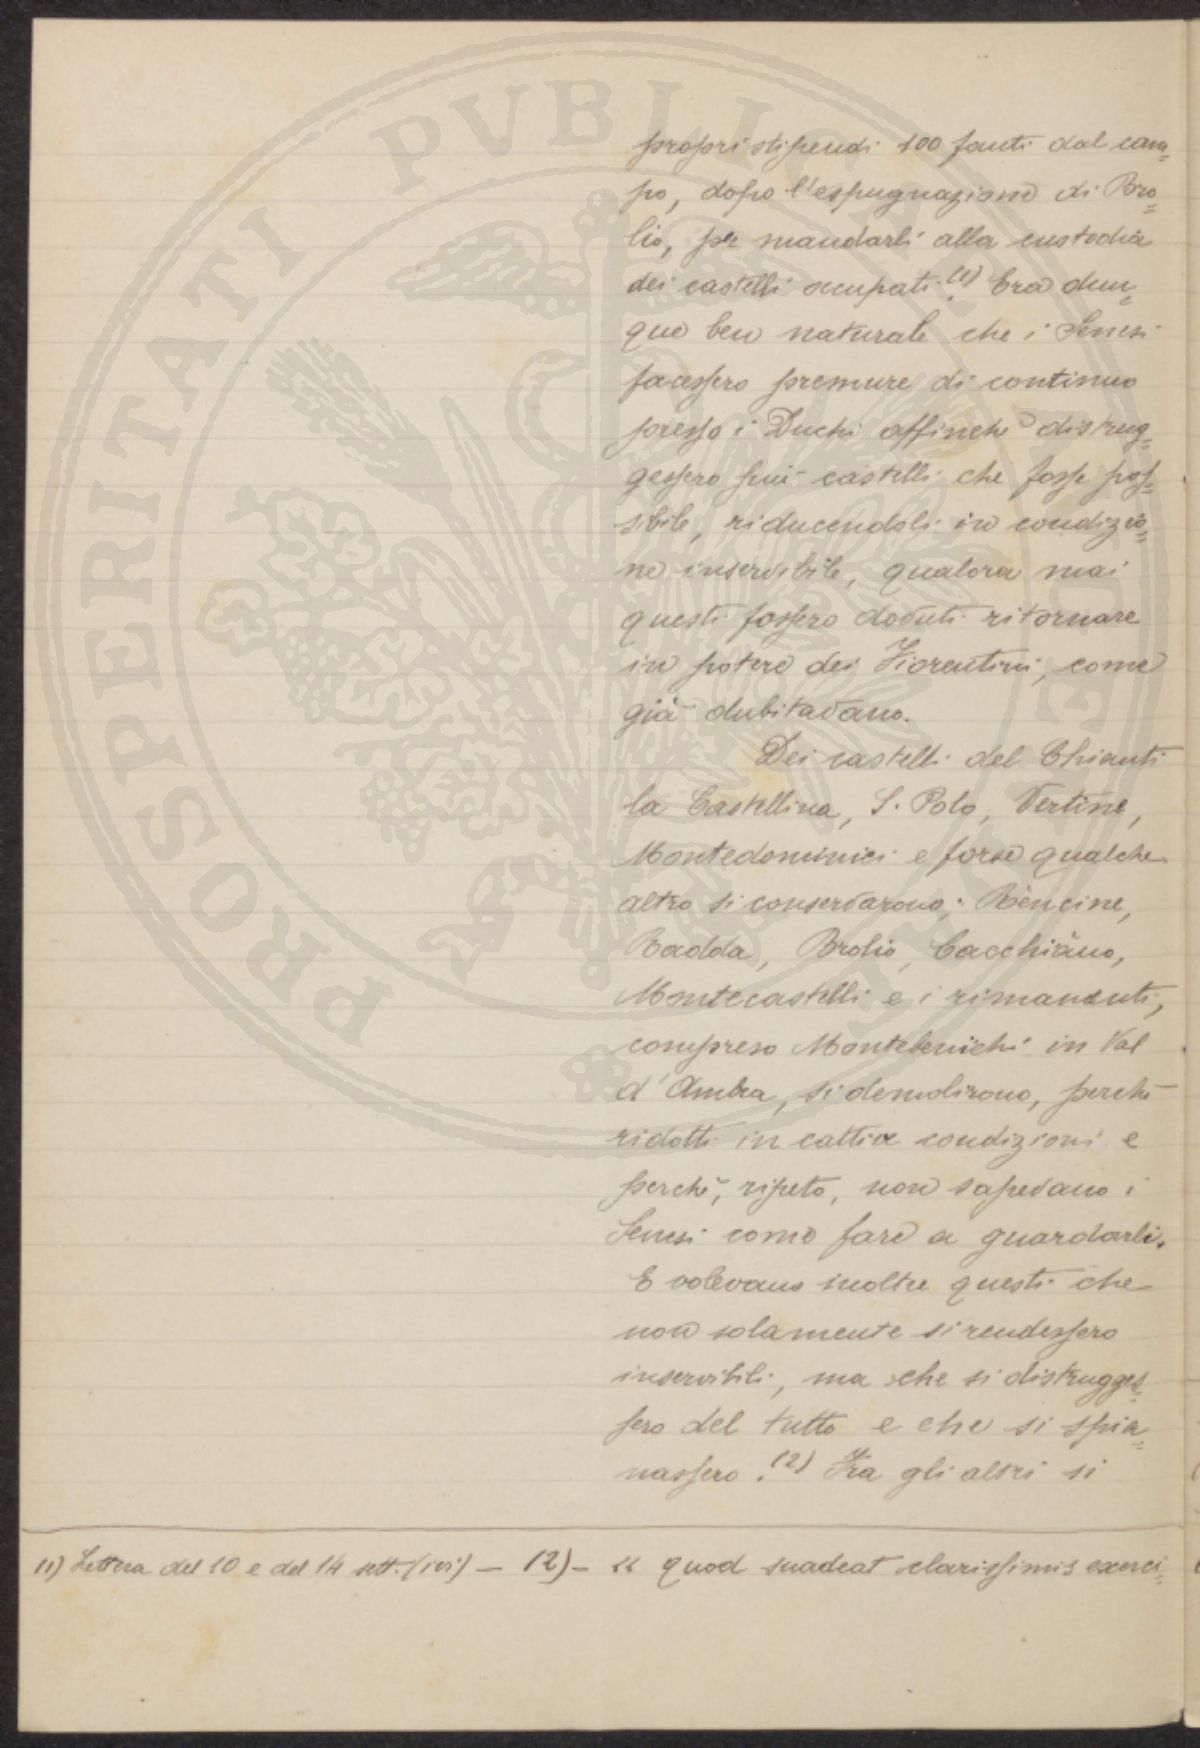 propri stipendi 100 fanti dal cam=
po, dopo l'espugnazione di Bro=
lio, per mandarli alla custodia
dei castelli occupati.(1) Era dun=
que ben naturale che i Senesi
facessero premure di continuo
presso i Duchi affinchè distrug=
gessero più castelli che fosse pos=
sibile, riducendoli in condizio=
ne inservibile, qualora mai
questi fossero dovuti ritornare
in potere dei Fiorentini, come
già dubitavano.
Dei castelli del Chianti
la Castellina, S. Polo, Vertine,
Montedominici e forse qualche
altro si conservarono; Rèncine,
Radda, Brolio, Cacchiano,
Montecastelli e i rimanenti,
compreso Montebenichi in Val
d'Ambra, si demolirono, perchè
ridotti in cattive condizioni e
perchè, ripeto, non sapevano i
Senesi come fare a guardarli.
E volevano inoltre questi che
non solamente si rendessero
inservibili, ma che si distrugges=
sero del tutto e che si spia=
nassero.(2) Fra gli altri si
(1) Lettera del 10 e del 14 sett. (ivi) — (2) — " quod suadeat clarissimis exerci=
PROSPERITATI PVBLICAE